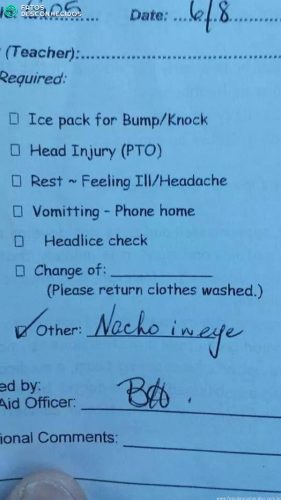 FATOS
DESCONHECIDOS
Date: 6/8
(Teacher):
Required:
Ice pack for Bump/Knock
Head Injury (PTO)
Rest ~ Feeling Ill/Headache
Vomitting - Phone home
Headlice check
Change of:
(Please return clothes washed.)
Other: Nacho in eye
ed by:
Aid Officer:
ional Comments: